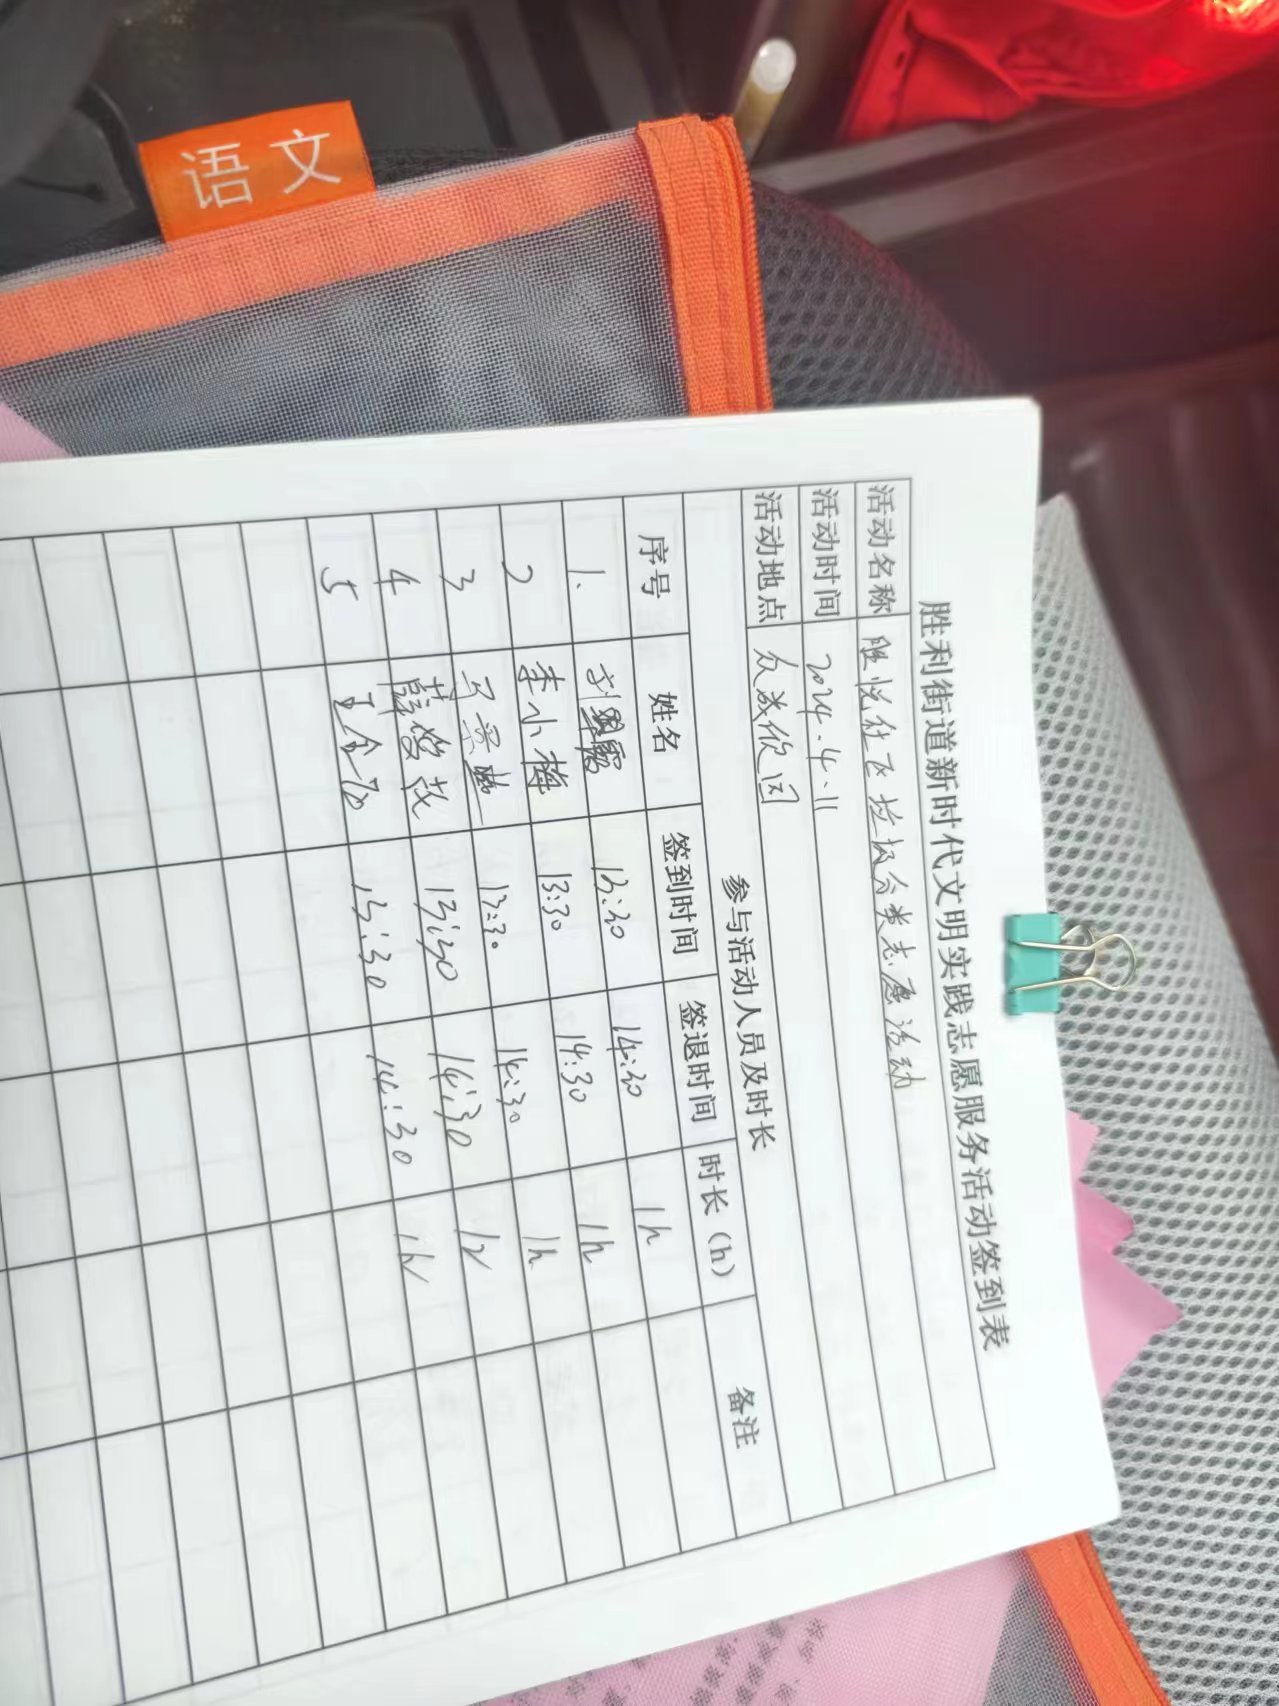 语文
胜利街道新时代文明实践志愿服务活动签到表
活动名称 胜悦社区垃圾分类志愿活动
活动时间 2024.4.11
活动地点 众成欣园
参与活动人员及时长
序号 姓名 签到时间 签退时间 时长（h） 备注
1. 13:30 14:30 1h
2 李小梅 13:30 14:30 1h
3 13:30 14:30 1h
4 13:30 14:30 1h
5 13:30 14:30 1h